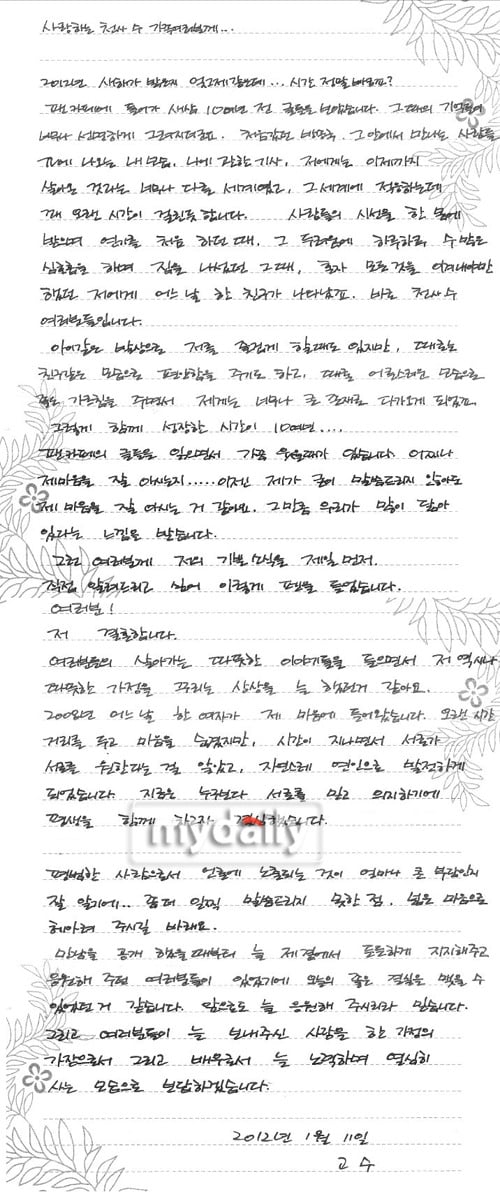 사랑하는 천사 수 가족여러분께...
2012년 새해가 밝은지 엊그제같은데... 시간 정말 빠르죠?
팬카페에 들어가 새삼 10여년 전 글들을 보았습니다. 그때의 기억들이
너무나 선명하게 그려지더군요. 처음갔던 방송국. 그 안에서 만나는 사람들
TV에 나오는 내 모습, 나에 관한 기사, 저에게는 이제까지
살아온 것과는 너무나 다른 세계였고, 그 세계에 적응하는데
꽤 오랜 시간이 걸린듯 합니다. 사람들의 시선을 한 몸에
받으며 연기를 처음 하던 때, 그 두려움에 하루하루 수 많은
심호흡을 하며 집을 나섰던 그때, 혼자 모든것을 이겨내야만
했던 저에게 어느 날 한 친구가 나타났죠. 바로 천사 수
여러분들입니다.
아이같은 발상으로 저를 즐겁게 할때도 있지만, 때로는
친구같은 모습으로 편안함을 주기도 하고, 때로는 어른스러운 모습으로
좋은 가르침을 주면서 제게는 너무나 큰 존재로 다가오게 되었죠.
그렇게 함께 성장한 시간이 10여년....
팬카페의 글들을 읽으면서 가끔 웃을때가 있습니다. 어찌나
제마음을 잘 아시는지..... 이젠 제가 굳이 말씀드리지 않아도
제 마음을 잘 아시는 거 같아요. 그만큼 우리가 많이 닮아
있다는 느낌을 받습니다.
그런 여러분께 저의 기쁜 소식을 제일 먼저.
직접 알려드리고 싶어 이렇게 펜을 들었습니다.
여러분!
저 결혼합니다.
여러분들의 살아가는 따뜻한 이야기들을 들으면서 저 역시나
따뜻한 가정을 꾸리는 상상을 늘 했던거 같아요.
2008년 어느날 한 여자가 제 마음에 들어왔습니다. 오랜 시간
거리를 두고 마음을 숨겼지만, 시간이 지나면서 서로가
서로를 원한다는 걸 알았고, 자연스레 연인으로 발전하게
되었습니다. 지금은 누구보다 서로를 믿고 의지하기에
평생을 함께 하고자 결심했습니다.
mydaily
평범한 사람으로서 언론에 노출되는 것이 얼마나 큰 부담인지
잘 알기에.. 좀더 일찍 말씀드리지 못한 점, 넓은 마음으로
헤아려 주시길 바래요.
만남을 공개 했을때부터 늘 제 곁에서 든든하게 지지해주고
응원해 주던 여러분들이 있었기에 오늘의 좋은 결실을 맺을 수
있었던 거 같습니다. 앞으로도 늘 응원해 주시리라 믿습니다.
그리고 여러분들이 늘 보내주신 사랑을 한 가정의
가장으로서 그리고 배우로서 늘 노력하며 열심히
사는 모습으로 보답하겠습니다.
2012년 1월 11일
고 수